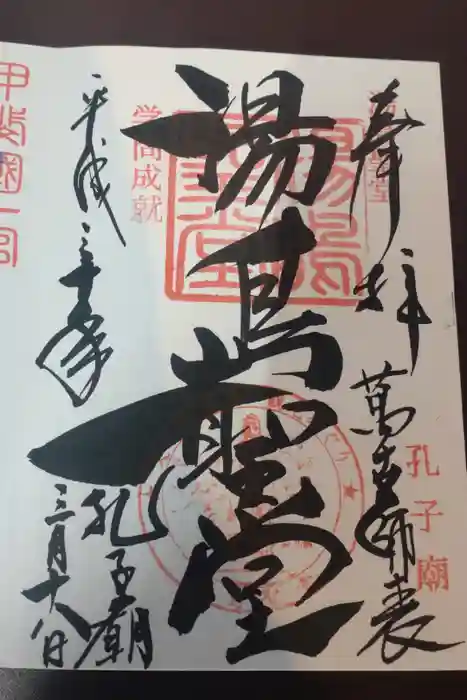 奉拝
萬古師表
孔子廟
湯島聖堂
学問成就
孔子廟
平成三十年
三月十八日
甲斐國一宮